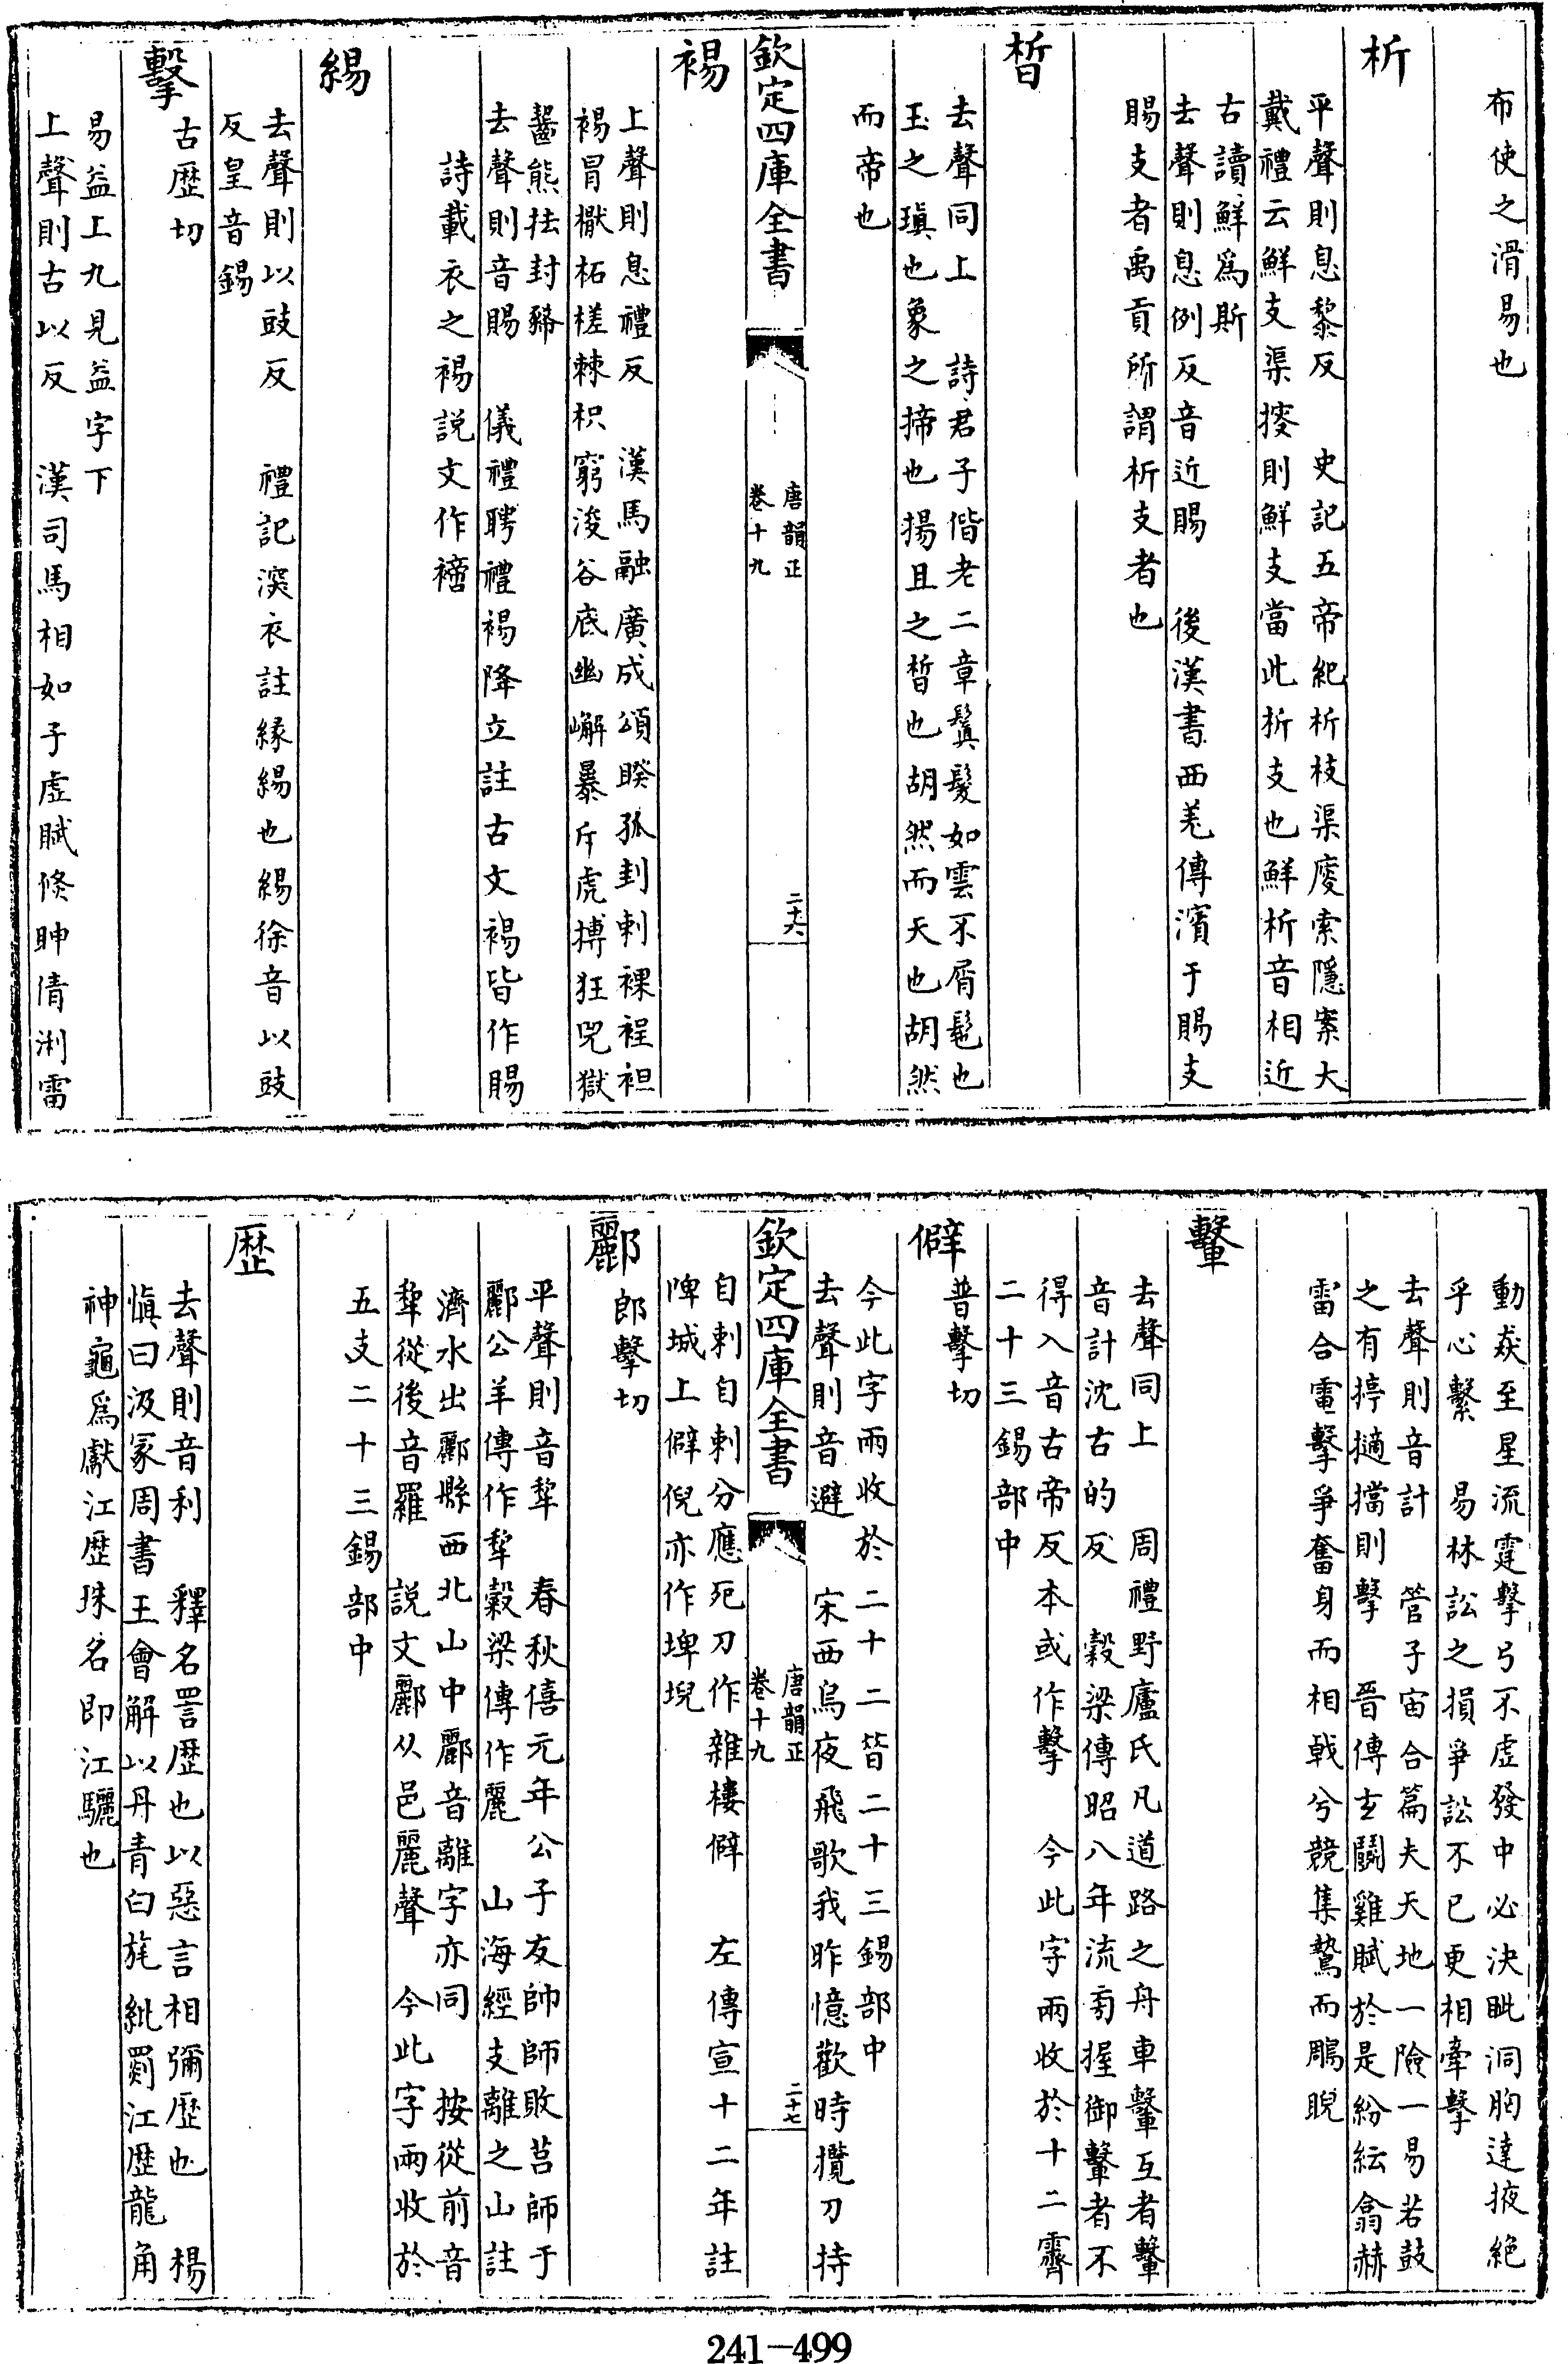 布使之滑易也
析
平聲則息黎反　史記五帝紀析枝渠廋索隱案大
戴禮云鮮支渠搜則鮮支當此析支也鮮析音相近
古讀鮮爲斯
去聲則息例反音近賜　後漢書西羌傳濱于賜支
賜支者禹貢所謂析支者也
晳
去聲同上　詩君子偕老二章鬒髮如雲不屑髢也
玉之瑱也象之揥也揚且之晳也胡然而天也胡然
而帝也
欽定四庫全書
唐韻正
卷十九
二十六
裼
上聲則息禮反　漢馬融廣成頌睽孤刲刺裸裎袒
裼冒㯕柘槎棘枳窮浚谷底幽嶰暴斥虎搏狂兕獄
齧熊抾封豨
去聲則音賜　儀禮聘禮裼降立註古文裼皆作賜
詩載衣之裼説文作䙗
緆
去聲則以豉反　禮記深衣註緣緆也緆徐音以豉
反皇音錫
擊
古歷切
易益上九見益字下
上聲則古以反　漢司馬相如子虚賦倏眒倩浰雷
動猋至星流霆擊弓不虚發中必決眦洞胸達掖絶
乎心繫　易林訟之損爭訟不已更相牽擊
去聲則音計　管子宙合篇夫天地一險一易若鼓
之有捊擿擋則擊　晉傅玄鬬雞賦於是紛紜翕赫
雷合電擊爭奮身而相戟兮競隼鷙而鵰睨
轚
去聲同上　周禮野廬氏凡道路之舟車轚互者轚
音計沈古的反　穀梁傳昭八年流旁握御轚者不
得入音古帝反本或作擊　今此字兩收於十二霽
二十三錫部中
僻
普擊切
今此字兩收於二十二昔二十三錫部中
去聲則音避　宋西烏夜飛歌我昨憶歡時攬刀持
自刺自刺分應死刀作雜樓僻　左傳宣十二年註
陴城上僻倪亦作埤堄
欽定四庫全書
唐韻正
卷十九
二十七
酈
郎擊切
平聲則音犂　春秋僖元年公子友帥師敗莒師于
酈公羊傳作犂穀梁傳作麗　山海經支離之山註
濟水出酈縣西北山中酈音離字亦同　按從前音
犂從後音羅　説文酈从邑麗聲　今此字兩收於
五支二十三錫部中
歷
去聲則音利　釋名詈歷也以惡言相彌歷也　楊
愼曰汲冢周書王會解以丹青白旄紕罽江歷龍角
神龜爲獻江歷珠名即江驪也
241-499